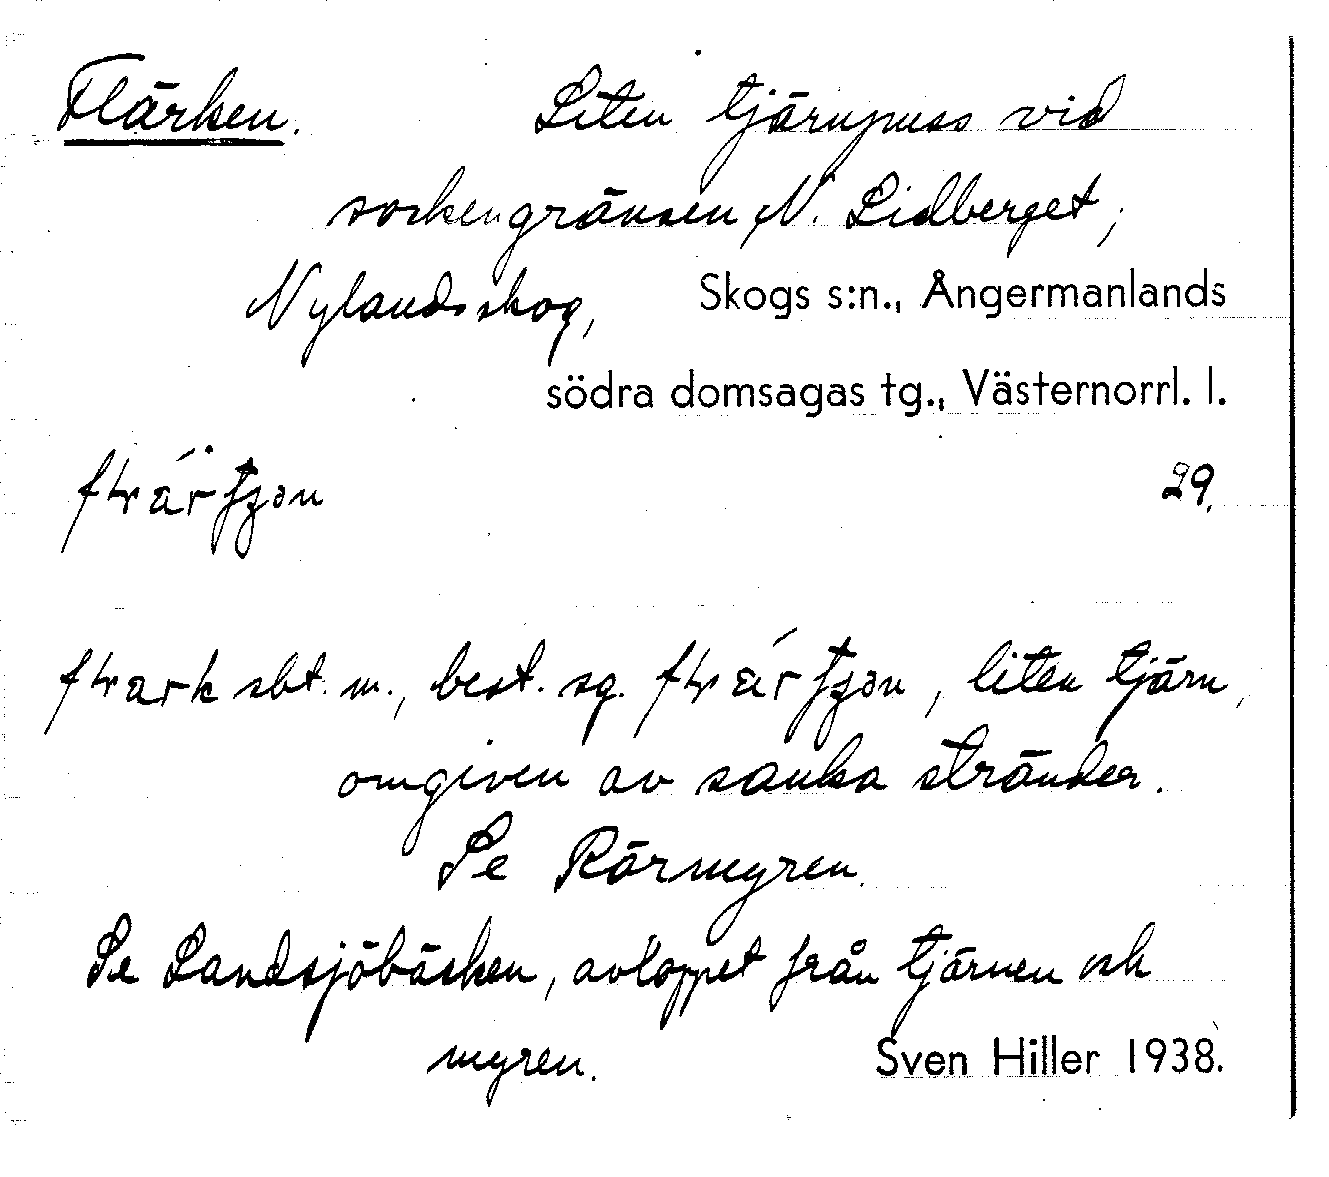 Flärken. Liten tjärnpuss vid
sockengränsen N. Lidberget,
Nylandsskog, Skogs s:n., Ångermanlands
södra domsagas tg., Västernorrl. l.
29.
sbt. m., best. sg. , liten tjärn,
omgiven av sanka stränder.
Se Rörmyren.
Se Landsjöbäcken, avloppet från tjärnen och
myren. Sven Hiller 1938.